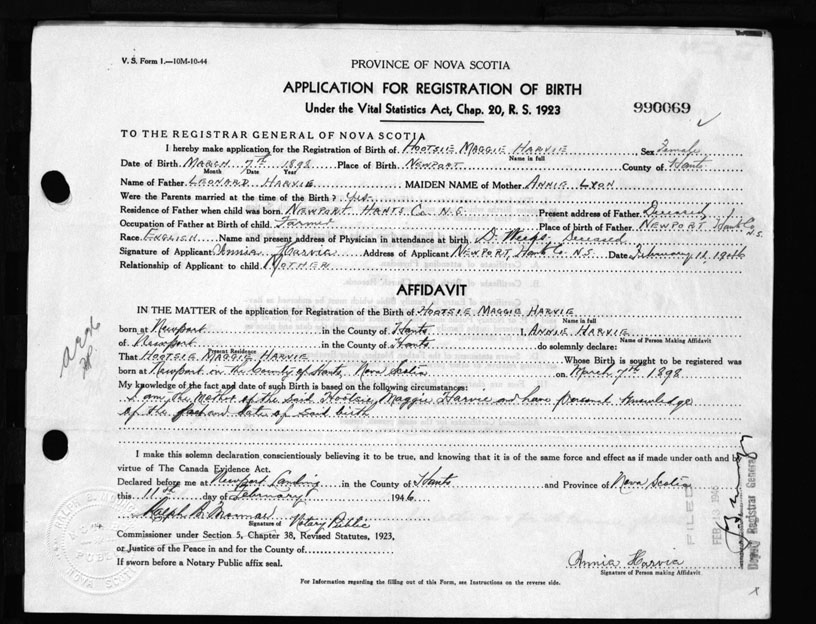 V. S. Form 1.—10M-10-44
PROVINCE OF NOVA SCOTIA
APPLICATION FOR REGISTRATION OF BIRTH
Under the Vital Statistics Act, Chap. 20, R. S. 1923
990069
TO THE REGISTRAR GENERAL OF NOVA SCOTIA
I hereby make application for the Registration of Birth of HOOTSIE MAGGIE HARVIE Sex Female
Name in full
Date of Birth MARCH 7th 1898 Place of Birth NEWPORT County of Hants
Month Date Year
Name of Father LEONARD HARVIE MAIDEN NAME of Mother ANNIE LYON
Were the Parents married at the time of the Birth? Yes
Residence of Father when child was born NEWPORT HANTS Co N.S. Present address of Father Deceased
Occupation of Father at Birth of child Farmer Place of birth of Father NEWPORT Hants Co N.S.
Race ENGLISH Name and present address of Physician in attendance at birth D. Weeks Deceased
Signature of Applicant Annia Harvia Address of Applicant NEWPORT, Hants Co N.S. Date February 11 1946
Relationship of Applicant to child MOTHER
AFFIDAVIT
IN THE MATTER of the application for Registration of the Birth of HOOTSIE MAGGIE HARVIE
Name in full
born at Newport in the County of Hants I, ANNIE HARVIE
Name of Person Making Affidavit
of Newport in the County of Hants do solemnly declare:
Present Residence
That HOOTSIE MAGGIE HARVIE Whose Birth is sought to be registered was
born at Newport in the County of Hants, Nova Scotia on March 7th 1898
My knowledge of the fact and date of such Birth is based on the following circumstances:
I am the Mother of the said Hootsie Maggie Harvie and have personal knowledge
of the fact and date of said birth
I make this solemn declaration conscientiously believing it to be true, and knowing that it is of the same force and effect as if made under oath and by
virtue of The Canada Evidence Act.
Declared before me at Newport Landing in the County of Hants and Province of Nova Scotia
this 11th day of February 1946
Notary Public
Signature of
Commissioner under Section 5, Chapter 38, Revised Statutes, 1923,
or Justice of the Peace in and for the County of
If sworn before a Notary Public affix seal.
Annia Harvia
Signature of Person making Affidavit
For Information regarding the filling out of this Form, see Instructions on the reverse side.
FILED
Deputy Registrar General
NOVA SCOTIA